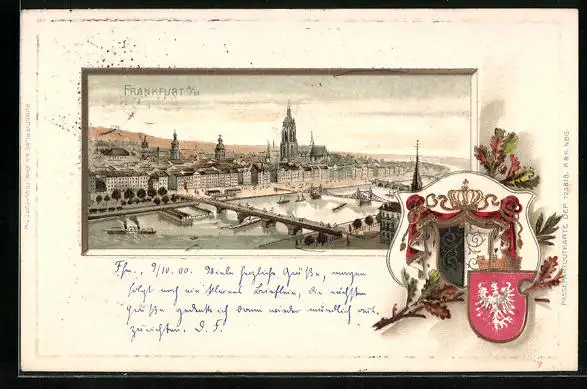 FRANKFURT a/M
Ffm., 9/10.00. Viele herzliche Grüße, morgen
folgt noch ein kleines Brieflein, die nächsten
Grüße gedenke ich dann wieder mündlich aus-
zurichten. D. F.
PASSEPARTOUTKARTE DEP. 12381B. K & K. NBG.